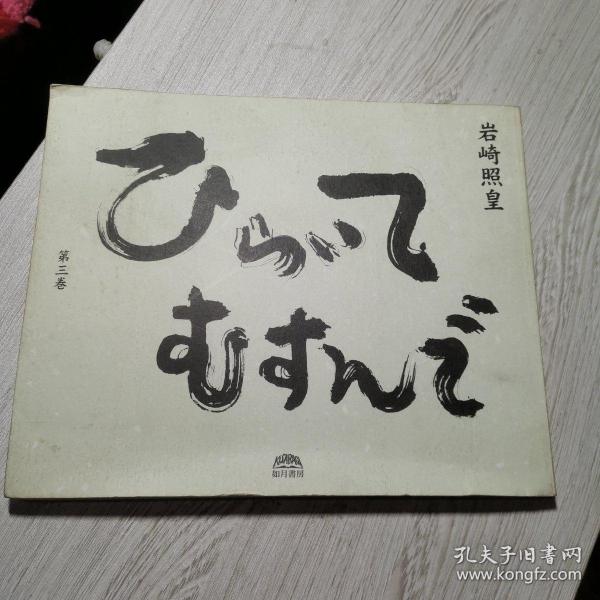 岩崎照皇
ひらいて
むすんで
第三巻
如月書房
孔夫子旧書网
www.kongfz.com